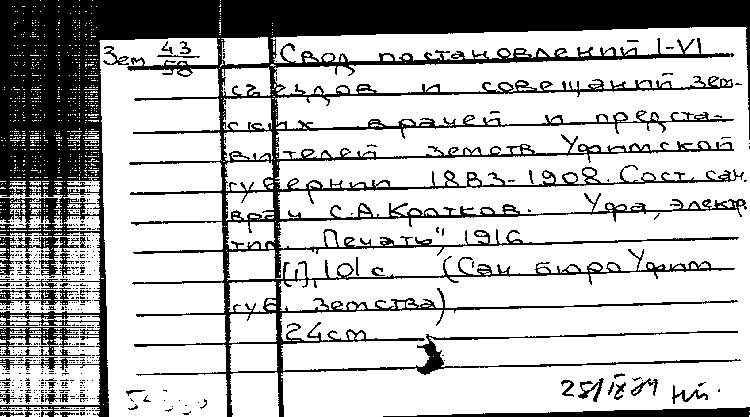 Зем 43/58 Свод постановлений I-VI
съездов и совещаний зем-
ских врачей и предста-
вителей земств Уфимской
губернии 1883-1908. Сост. сан.
врач С.А. Кротков. Уфа, электр.
тип. "Печать", 1916.
[1], 101 с. (Сан. бюро Уфим.
губ. земства)
24см